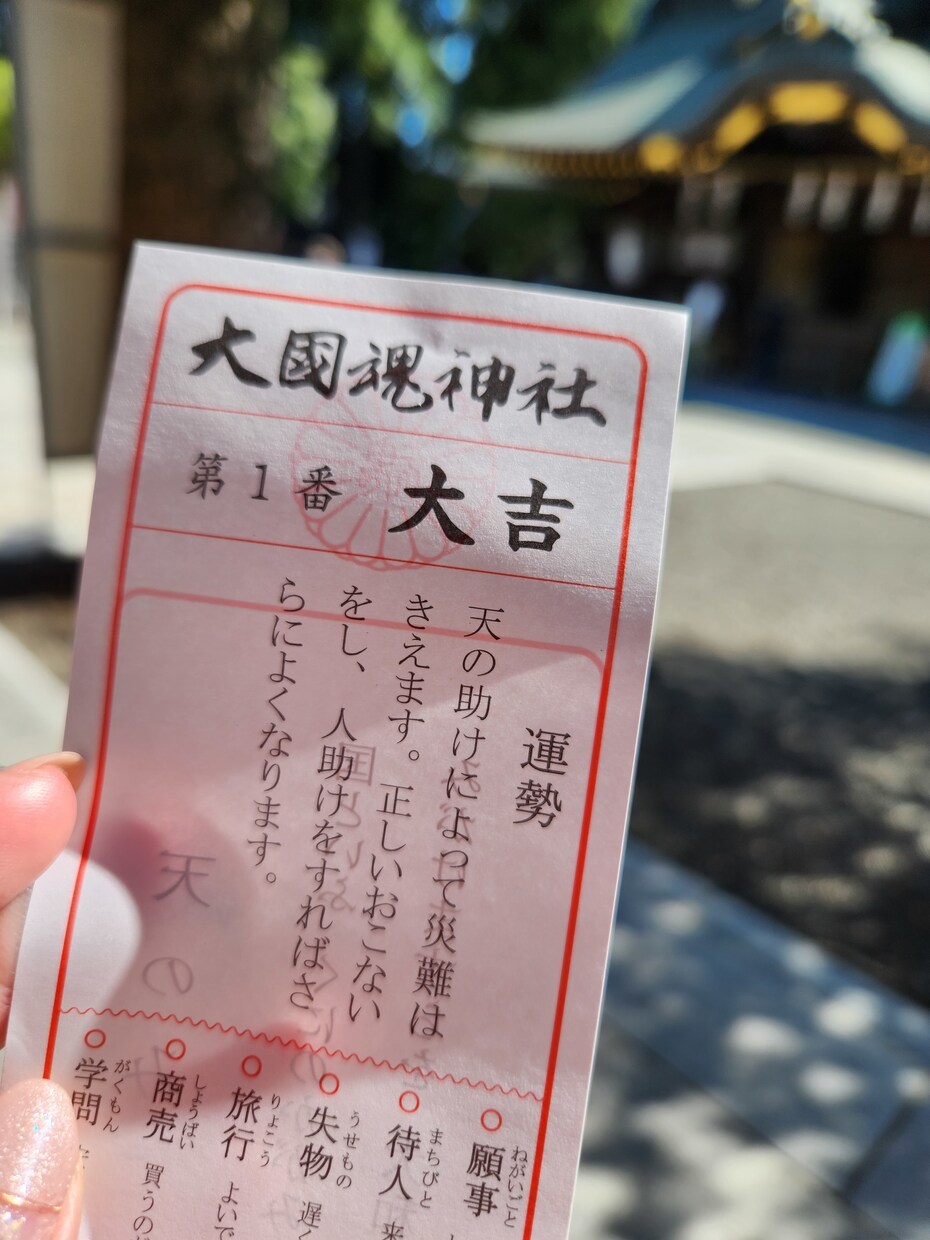 大國魂神社
第1番 大吉
運勢
天の助けによって災難は
きえます。正しいおこない
をし、人助けをすればさ
らによくなります。
願事 ねがいごと
待人 まちびと 来
失物 うせもの 遅く
旅行 りょこう よいで
商売 しょうばい 買うの
学問 がくもん